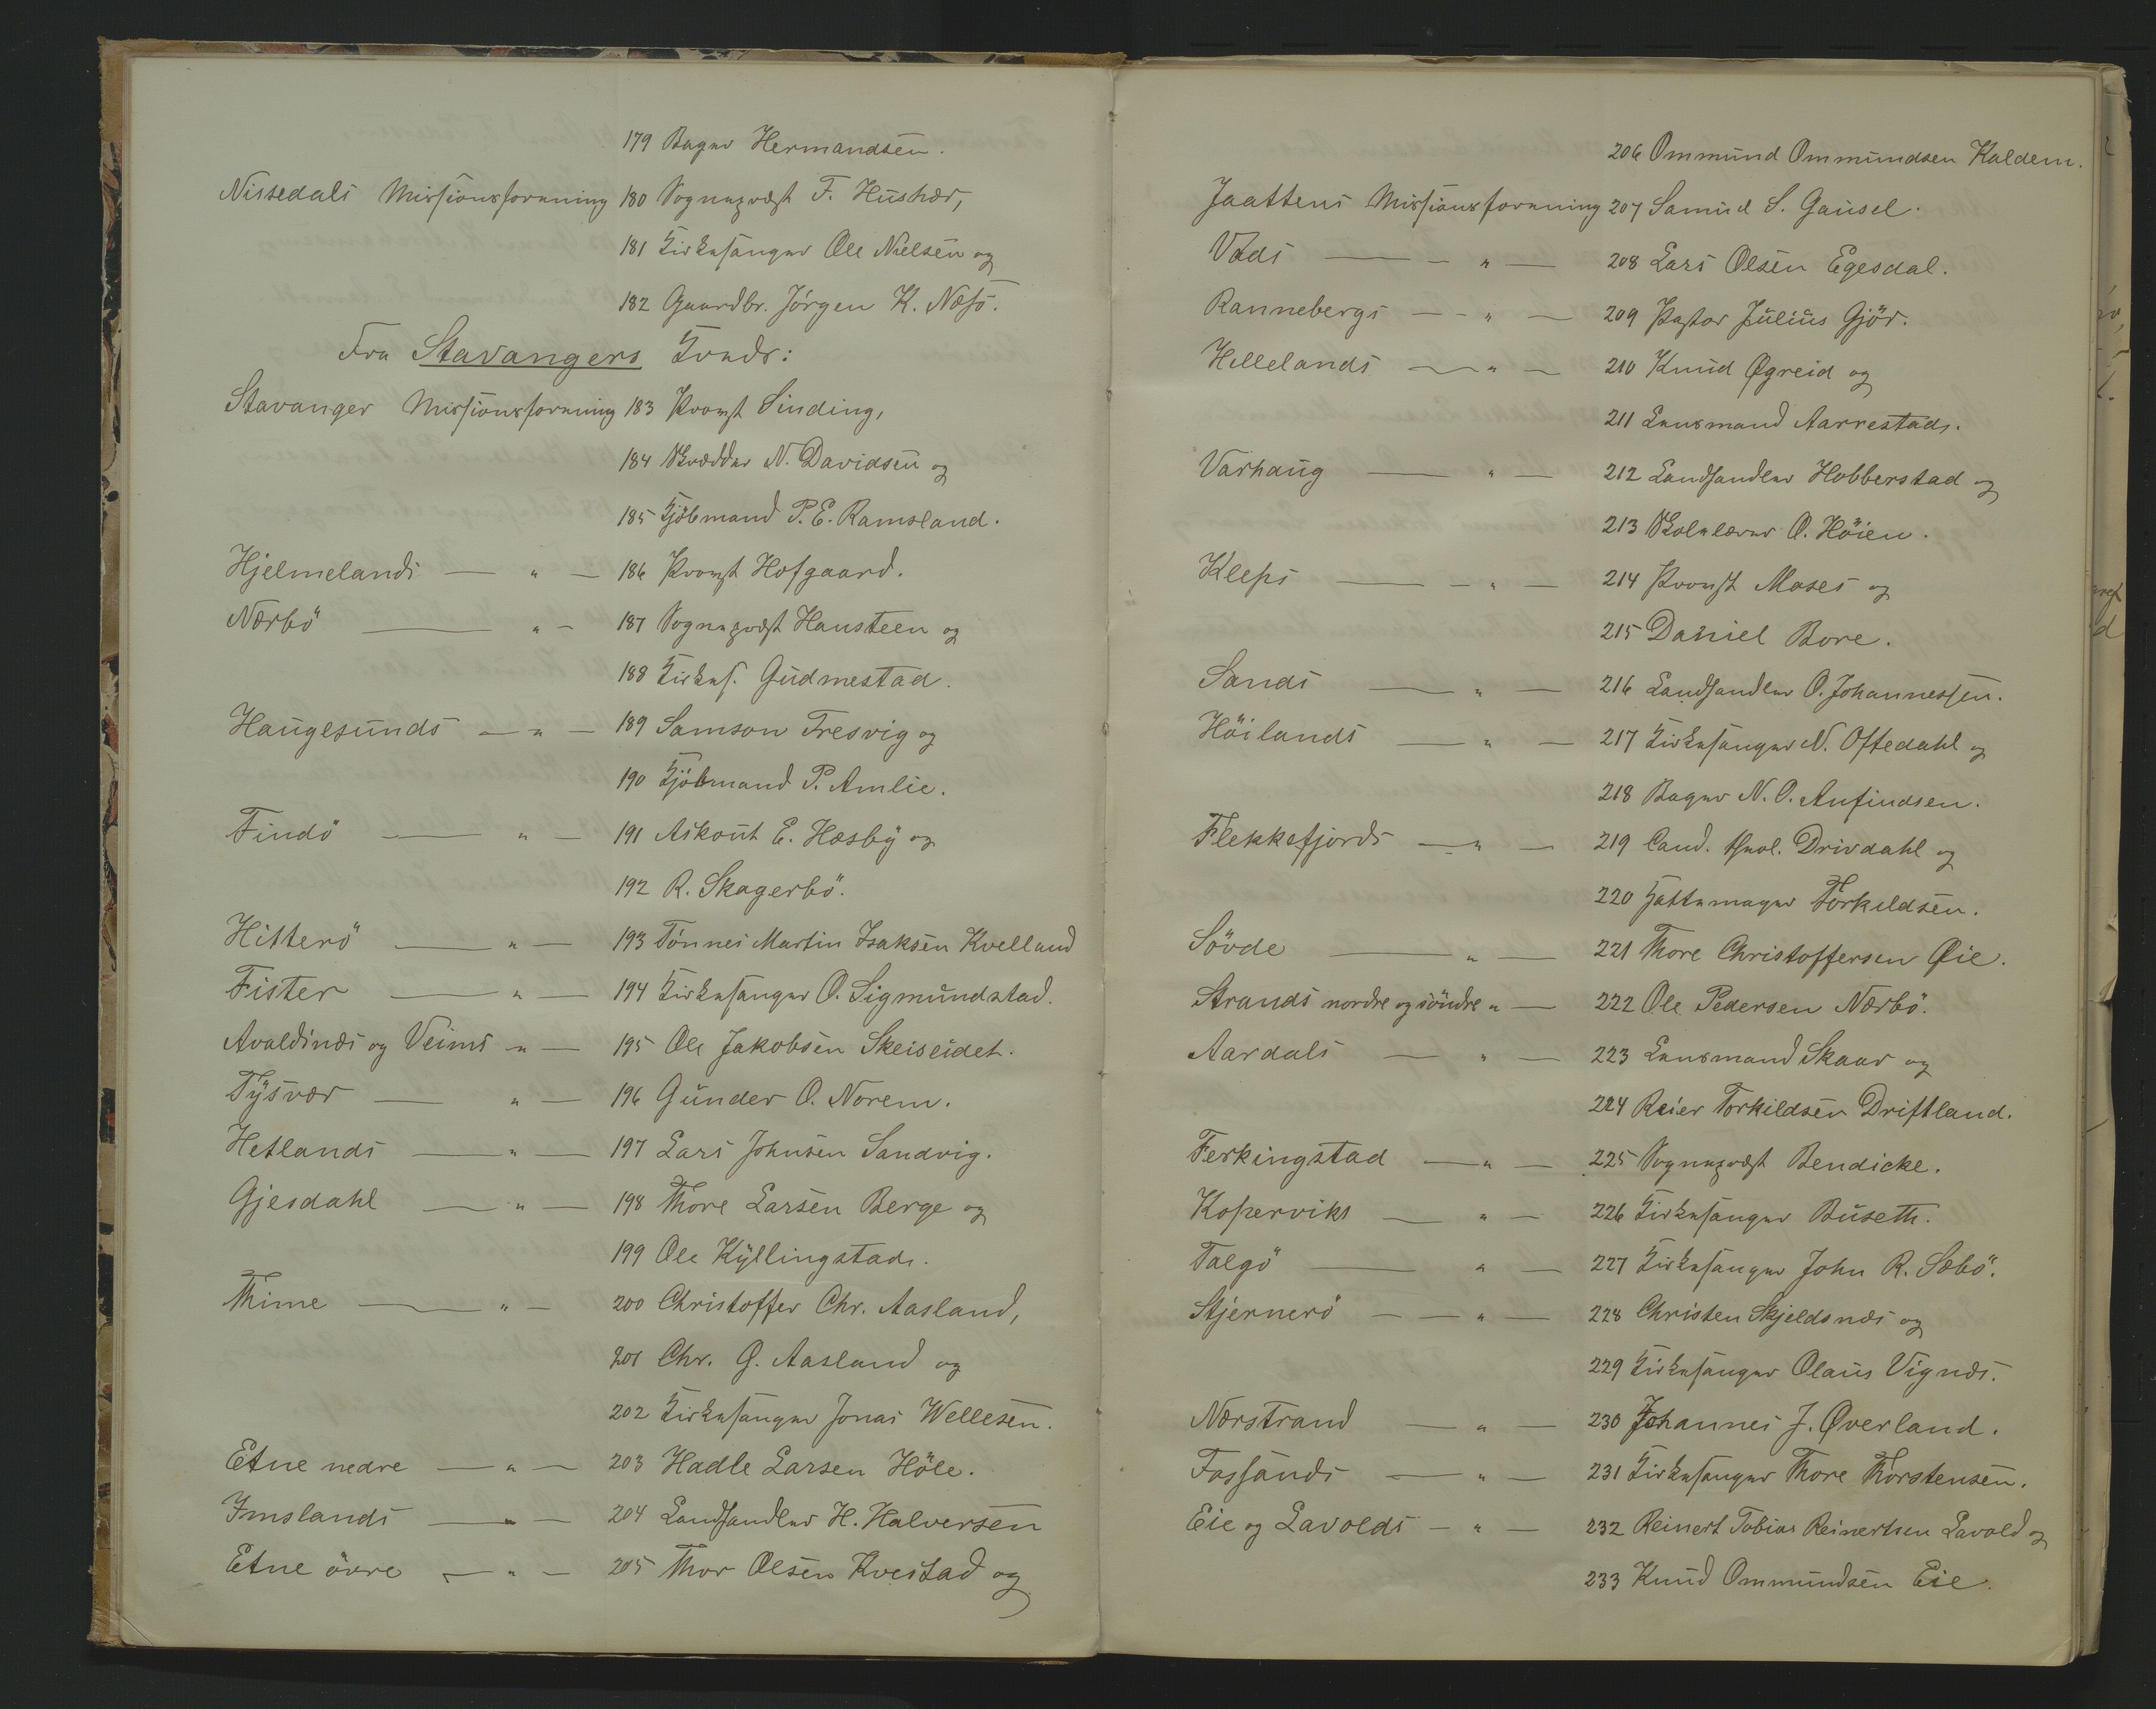 179 Bager Hermandsen.
Nissedals Missionsforening 180 Sognepræst F. Hushær,
181 Kirkesanger Ole Nielsen og
182 Gaardbr. Jörgen K. Næss.
Fra Stavangers Kreds:
Stavanger Missionsforening 183 Provst Sinding,
184 Skrædder N. Davidsen og
185 Kjöbmand P. E. Ramsland.
Hjelmelands — " — 186 Provst Hofgaard.
Nærbö — " — 187 Sognepræst Hansteen og
188 Kirkes. Gudmestad.
Haugesunds — " — 189 Samson Tresvig og
190 Kjöbmand P. Amlie.
Findö — " — 191 Askout E. Hæsby og
192 R. Skagerbö.
Hitterö — " — 193 Tönnes Martin Isaksen Kvelland
Fister — " — 194 Kirkesanger O. Sigmundstad.
Avaldsnæs og Veims " — 195 Ole Jakobsen Skeiseidet.
Tysvær — " — 196 Gunder O. Norem.
Hetlands — " — 197 Lars Johnsen Sandvig.
Gjesdahl — " — 198 Thore Larsen Berge og
199 Ole Kyllingstad.
Thime — " — 200 Christoffer Chr. Aasland,
201 Chr. G. Aasland og
202 Kirkesanger Jonas Wellesen.
Etne nedre — " — 203 Hadle Larsen Höle.
Imslands — " — 204 Landhandler H. Halversen
Etne övre — " — 205 Thor Olsen Kvestad og
206 Ommund Ommundsen Kaldem.
Jaattens Missionsforening 207 Samuel S. Gausel.
Vads — " — 208 Lars Olsen Egesdal.
Rannebergs — " — 209 Pastor Julius Gjör.
Hellelands — " — 210 Knud Øgreid og
211 Lensmand Aarrestad.
Varhaug — " — 212 Landhandler Hobberstad og
213 Skolelærer O. Höien.
Kleps — " — 214 Provst Moses og
215 Daniel Bore.
Sands — " — 216 Landhandler O. Johannessen.
Höilands — " — 217 Kirkesanger N. Oftedahl og
218 Bager N. O. Anfindsen.
Flekkefjords — " — 219 Cand. theol. Drivdahl og
220 Hattemager Törkeldsen.
Sövde — " — 221 Thore Christoffersen Øie.
Strands nordre og söndre " — 222 Ole Pedersen Nærbö.
Aardals — " — 223 Lensmand Skaar og
224 Reier Torkildsen Driftland.
Ferkingstad — " — 225 Sognepræst Bendicke.
Koperviks — " — 226 Kirkesanger Buseth.
Talgö — " — 227 Kirkesanger John R. Sæbö.
Stjernerö — " — 228 Christen Skjeldsnæs og
229 Kirkesanger Olaus Vignæs.
Nærstrand — " — 230 Johannes J. Øverland.
Fossands — " — 231 Kirkesanger Thore Thorstensen.
Eie og Lavolds — " — 232 Reinert Tobias Reinertsen Lavold og
233 Knud Ommundsen Eie.